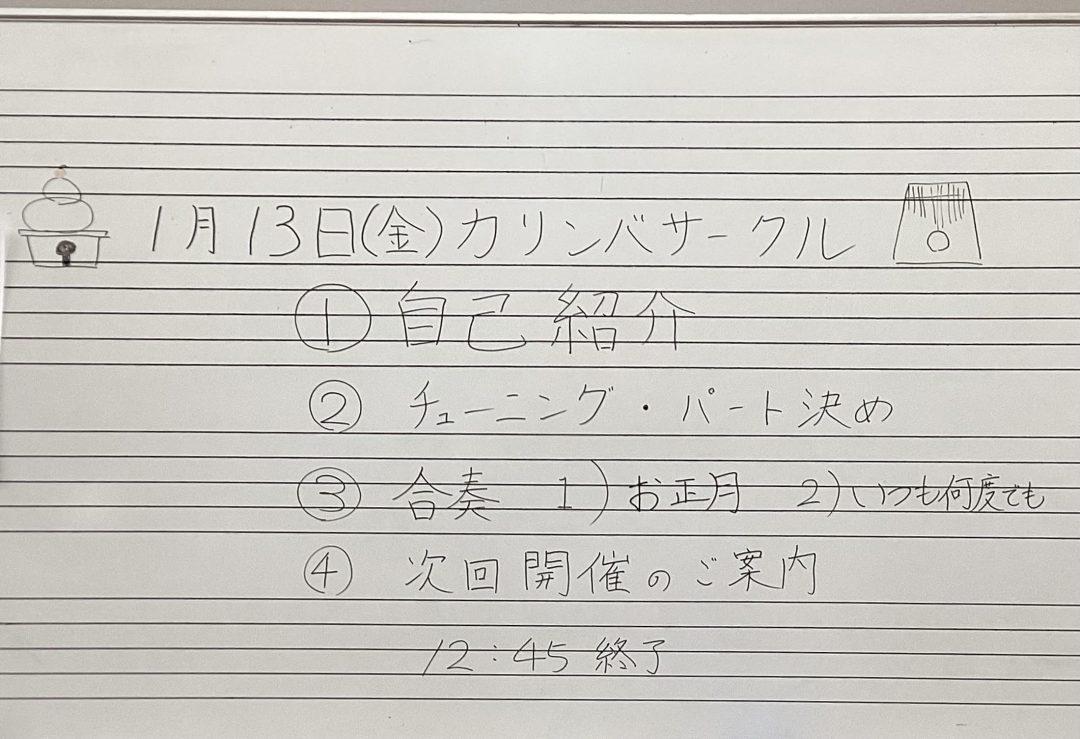 1月13日(金)カリンバサークル
① 自己紹介
② チューニング・パート決め
③ 合奏 1)お正月 2)いつも何度でも
④ 次回開催のご案内
12:45 終了